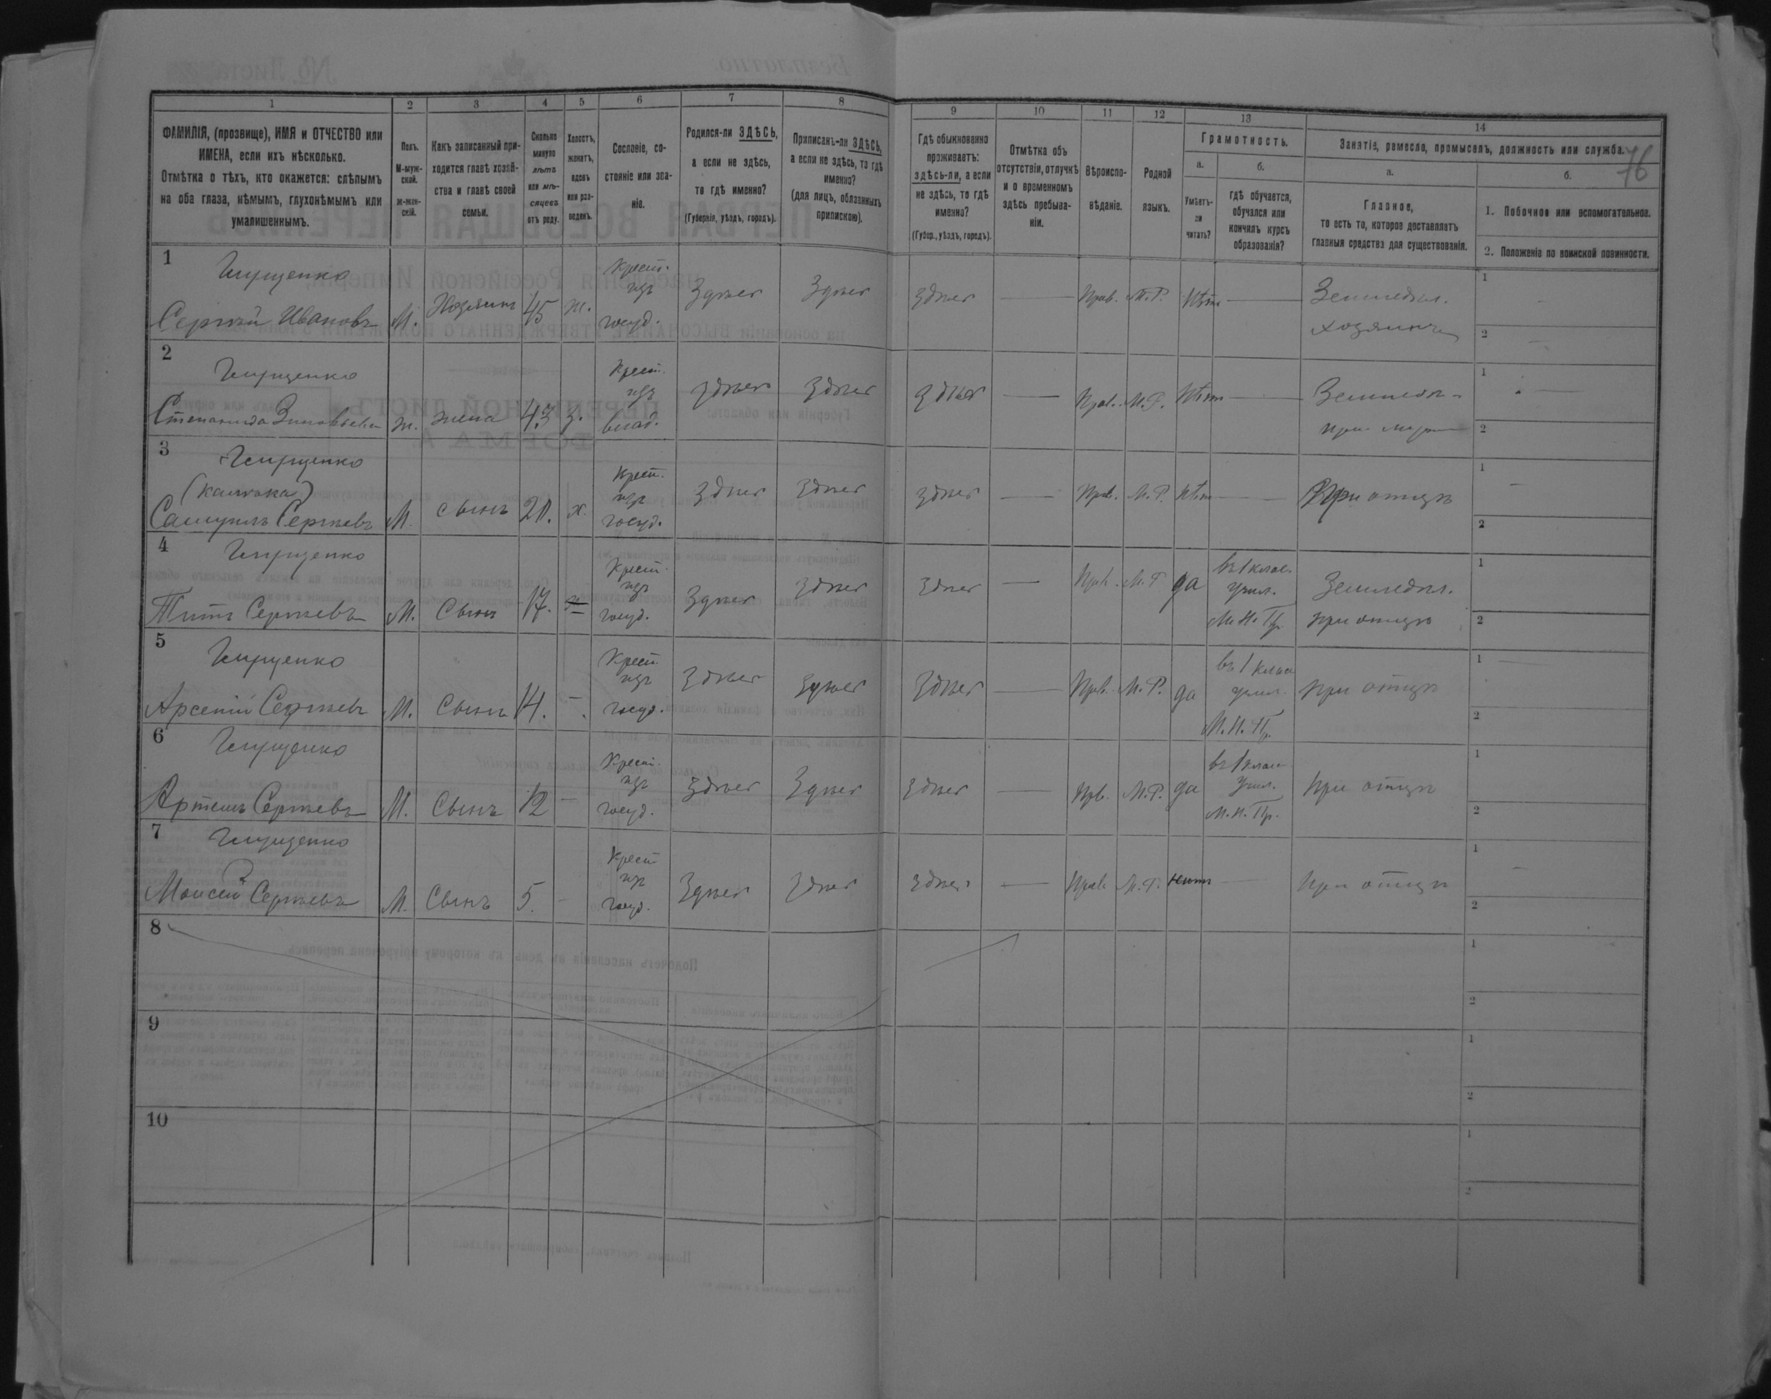 1 2 3 4 5 6 7 8 9 10 11 12 13 14
76
ФАМИЛІЯ, (прозвище), ИМЯ и ОТЧЕСТВО или
ИМЕНА, если ихъ нѣсколько.
Отмѣтка о тѣхъ, кто окажется: слѣпымъ
на оба глаза, нѣмымъ, глухонѣмымъ или
умалишеннымъ.
Полъ.
М-муж-
ской.
Ж-жен-
скій.
Какъ записанный при-
ходится главѣ хозяй-
ства и главѣ своей
семьи.
Сколько
минуло
лѣтъ
или мѣ-
сяцевъ
отъ роду.
Холостъ,
женатъ,
вдовъ
или раз-
веденъ.
Сословіе, со-
стояніе или зва-
ніе.
Родился-ли ЗДѢСЬ,
а если не здѣсь,
то гдѣ именно?
(Губернія, уѣздъ, городъ).
Приписанъ-ли ЗДѢСЬ,
а если не здѣсь, то гдѣ
именно?
(для лицъ, обязанныхъ
припискою).
Гдѣ обыкновенно
проживаетъ:
здѣсь-ли, а если
не здѣсь, то гдѣ
именно?
(Губер., уѣздъ, городъ).
Отмѣтка объ
отсутствіи, отлучкѣ
и о временномъ
здѣсь пребыва-
ніи.
Вѣроиспо-
вѣданіе.
Родной
языкъ.
Грамотность.
а.
Умѣетъ-
ли
читать?
б.
гдѣ обучается,
обучался или
кончилъ курсъ
образованія?
Занятіе, ремесло, промыселъ, должность или служба.
а.
Главное,
то есть то, которое доставляетъ
главныя средства для существованія.
б.
1. Побочное или вспомогательное.
2. Положеніе по воинской повинности.
1
Сергѣй Ивановъ М. Хозяинъ 45 ж.
Крест.
изъ
госуд.
Здѣсь Здѣсь Здѣсь — Прав. М.Р. Нѣтъ —
Земледѣл.
хозяинъ
1
2
2
Степанида Зиновьева ж. жена 43 з.
Крест.
изъ
Здѣсь Здѣсь Здѣсь — Прав. М.Р. Нѣтъ —
Земледѣл.
при мужѣ
1
2
3
Самуилъ Сергѣевъ М. сынъ 20. х.
Крест.
изъ
госуд.
Здѣсь Здѣсь Здѣсь — Прав. М.Р. Нѣтъ —
При отцѣ
1
2
4
Титъ Сергѣевъ М. Сынъ 17.
Крест.
изъ
госуд.
Здѣсь Здѣсь Здѣсь — Прв. М.Р. да
въ 1 клас.
учил.
М.Н.Пр.
Земледѣл.
при отцѣ
1
2
5
Арсеній Сергѣевъ М. Сынъ 14. –
Крест.
изъ
госуд.
Здѣсь Здѣсь Здѣсь — Прв. М.Р. да
въ 1 клас
учил.
М.Н.Пр.
при отцѣ
1
2
6
Артемъ Сергѣевъ М. Сынъ 12 –
Крест.
изъ
госуд.
Здѣсь Здѣсь Здѣсь — Прв. М.Р. да
въ 1 клас
Учил.
М.Н.Пр.
При отцѣ
1
2
7
Моисей Сергѣевъ М. Сынъ 5. –
Крест
изъ
госуд.
Здѣсь Здѣсь Здѣсь — Прав. М.Р. нѣтъ —
при отцѣ
1
2
8
1
2
9
1
2
10
1
2